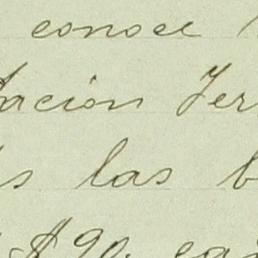 conoce
tacion Fer
s las b
$ 90. ca